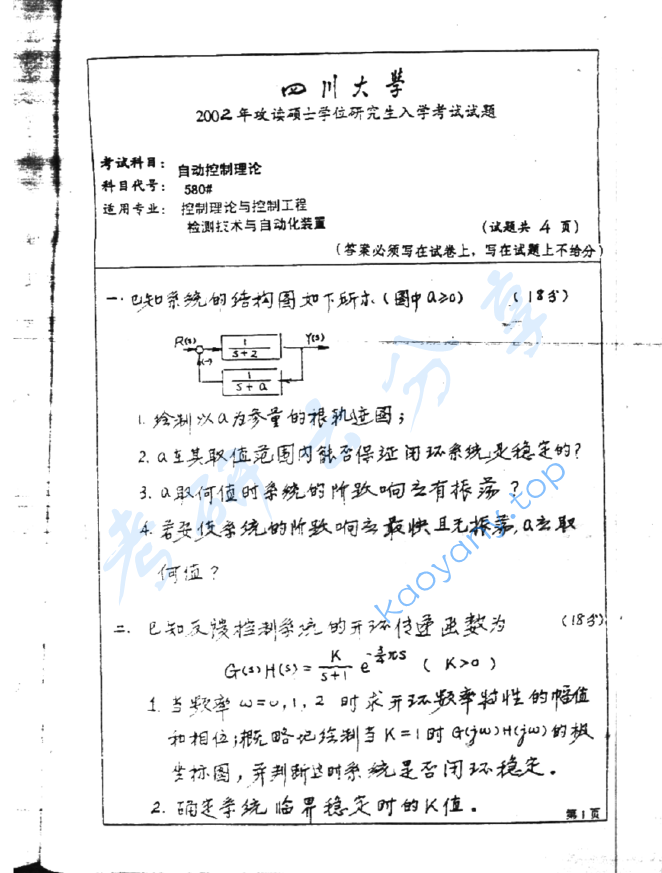 四川大學
2002年攻读硕士学位研究生入学考试试题
考试科目： 自动控制理论
科目代号： 580#
适用专业： 控制理论与控制工程
检测技术与自动化装置
(试题共 4 页)
(答案必须写在试卷上，写在试题上不给分)
一.已知系统的结构图如下所示(图中a≥0) (18分)
R(s) 1 Y(s)
s+2
(-) 1
s+a
1. 绘制以a为参量的根轨迹图;
2. a在其取值范围内能否保证闭环系统是稳定的?
3. a取何值时系统的阶跃响应有振荡?
4. 若要使系统的阶跃响应最快且无振荡,a应取
何值?
二. 已知反馈控制系统的开环传递函数为 (18分)
G(s)H(s)= K/(s+1) e^(-3/4 πs) ( K>0 )
1. 当频率 ω=0,1,2 时求开环频率特性的幅值
和相位;概略地绘制当K=1时G(jω)H(jω)的极
坐标图,并判断这时系统是否闭环稳定。
2. 确定系统临界稳定时的K值。
第1页
考研云分享
kaoyany.top